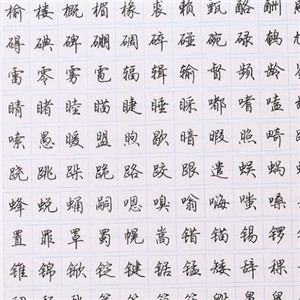 榆 楼 概 楣 椽 裘 赖 甄 酪 酬
碍 碘 碑 硼 碉 碎 碰 碗 碌 鹌
雷 零 雾 雹 辐 辑 输 督 频 龄
睛 睹 睦 瞄 睫 睡 睬 嘟 嗜 嗑
嗦 愚 暖 盟 煦 歇 暗 暇 照 畸
跷 跳 跺 跪 路 跤 跟 遣 蜈 蜗
蜂 蜕 蛹 嗣 嗯 嗅 嗡 嗨 嗤 嗓
置 罪 罩 蜀 幌 嵩 错 锚 锡 锣
锥 锦 锨 锭 键 锯 锰 矮 辞 稞